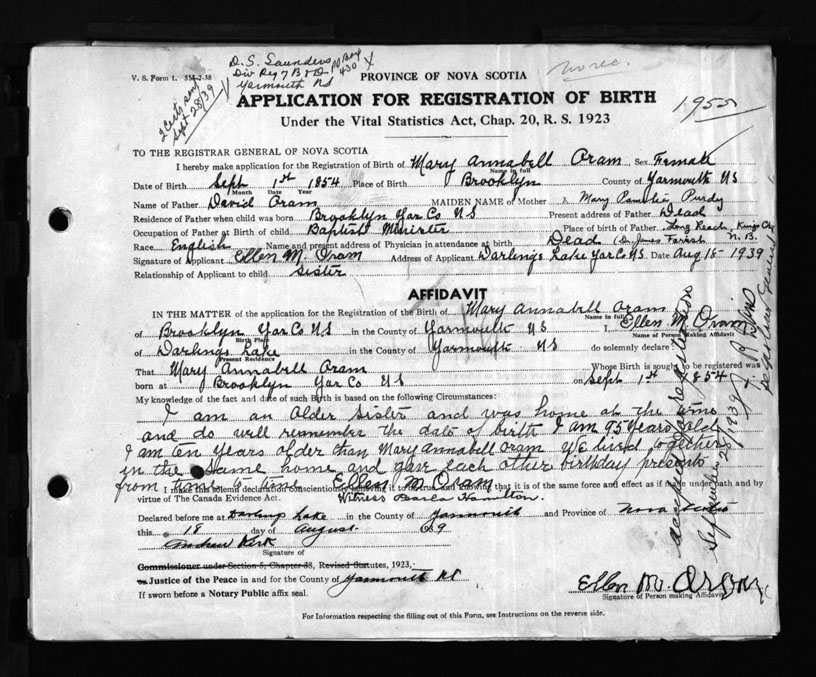 D. S. Saunders
Div Reg 7 B & D PO Box 430
Yarmouth NS
2 Certs sent Sept 28/39
1955
V. S. Form 1. 5M-2-38
PROVINCE OF NOVA SCOTIA
APPLICATION FOR REGISTRATION OF BIRTH
Under the Vital Statistics Act, Chap. 20, R. S. 1923
TO THE REGISTRAR GENERAL OF NOVA SCOTIA
I hereby make application for the Registration of Birth of Mary Annabell Oram Sex Female
Name in full
Date of Birth Sept 1st 1854 Place of Birth Brooklyn County of Yarmouth NS
Month Date Year
Name of Father David Oram MAIDEN NAME of Mother Mary Pamelia Purdy
Residence of Father when child was born Brooklyn Yar Co NS Present address of Father Dead
Occupation of Father at Birth of child Baptist Minister Place of birth of Father Long Reach, Kings Cty N. B.
Race English Name and present address of Physician in attendance at birth Dead (Dr. James Farish
Signature of Applicant Ellen M. Oram Address of Applicant Darlings Lake Yar Co NS. Date Aug 18 - 1939
Relationship of Applicant to child Sister
AFFIDAVIT
IN THE MATTER of the application for the Registration of the Birth of Mary Annabell Oram
Name in full
of Brooklyn Yar Co NS in the County of Yarmouth NS I, Ellen M Oram
Birth Place Name of Person Making Affidavit
of Darlings Lake in the County of Yarmouth NS do solemnly declare
Present Residence
That Mary Annabell Oram Whose Birth is sought to be registered was
born at Brooklyn Yar Co NS on Sept 1st 1854
My knowledge of the fact and date of such Birth is based on the following Circumstances:
I am an older Sister and was home at the time
and do well remember the date of birth I am 95 years old
I am ten years older than Mary Annabell Oram We lived together
in the same home and gave each other birthday presents
from time to time Ellen M Oram
I make this solemn declaration conscientiously believing it to be true and knowing that it is of the same force and effect as if made under oath and by
virtue of The Canada Evidence Act. Witness Hamilton.
Declared before me at Darling Lake in the County of Yarmouth and Province of Nova Scotia
this 18 day of August 1939
Signature of
Commissioner under Section 5, Chapter 38, Revised Statutes, 1923,
or Justice of the Peace in and for the County of Yarmouth NS
If sworn before a Notary Public affix seal.
Ellen M. Oram
Signature of Person making Affidavit
For Information respecting the filling out of this Form, see Instructions on the reverse side.
accepted for registration
September 28 1939
Deputy Registrar General